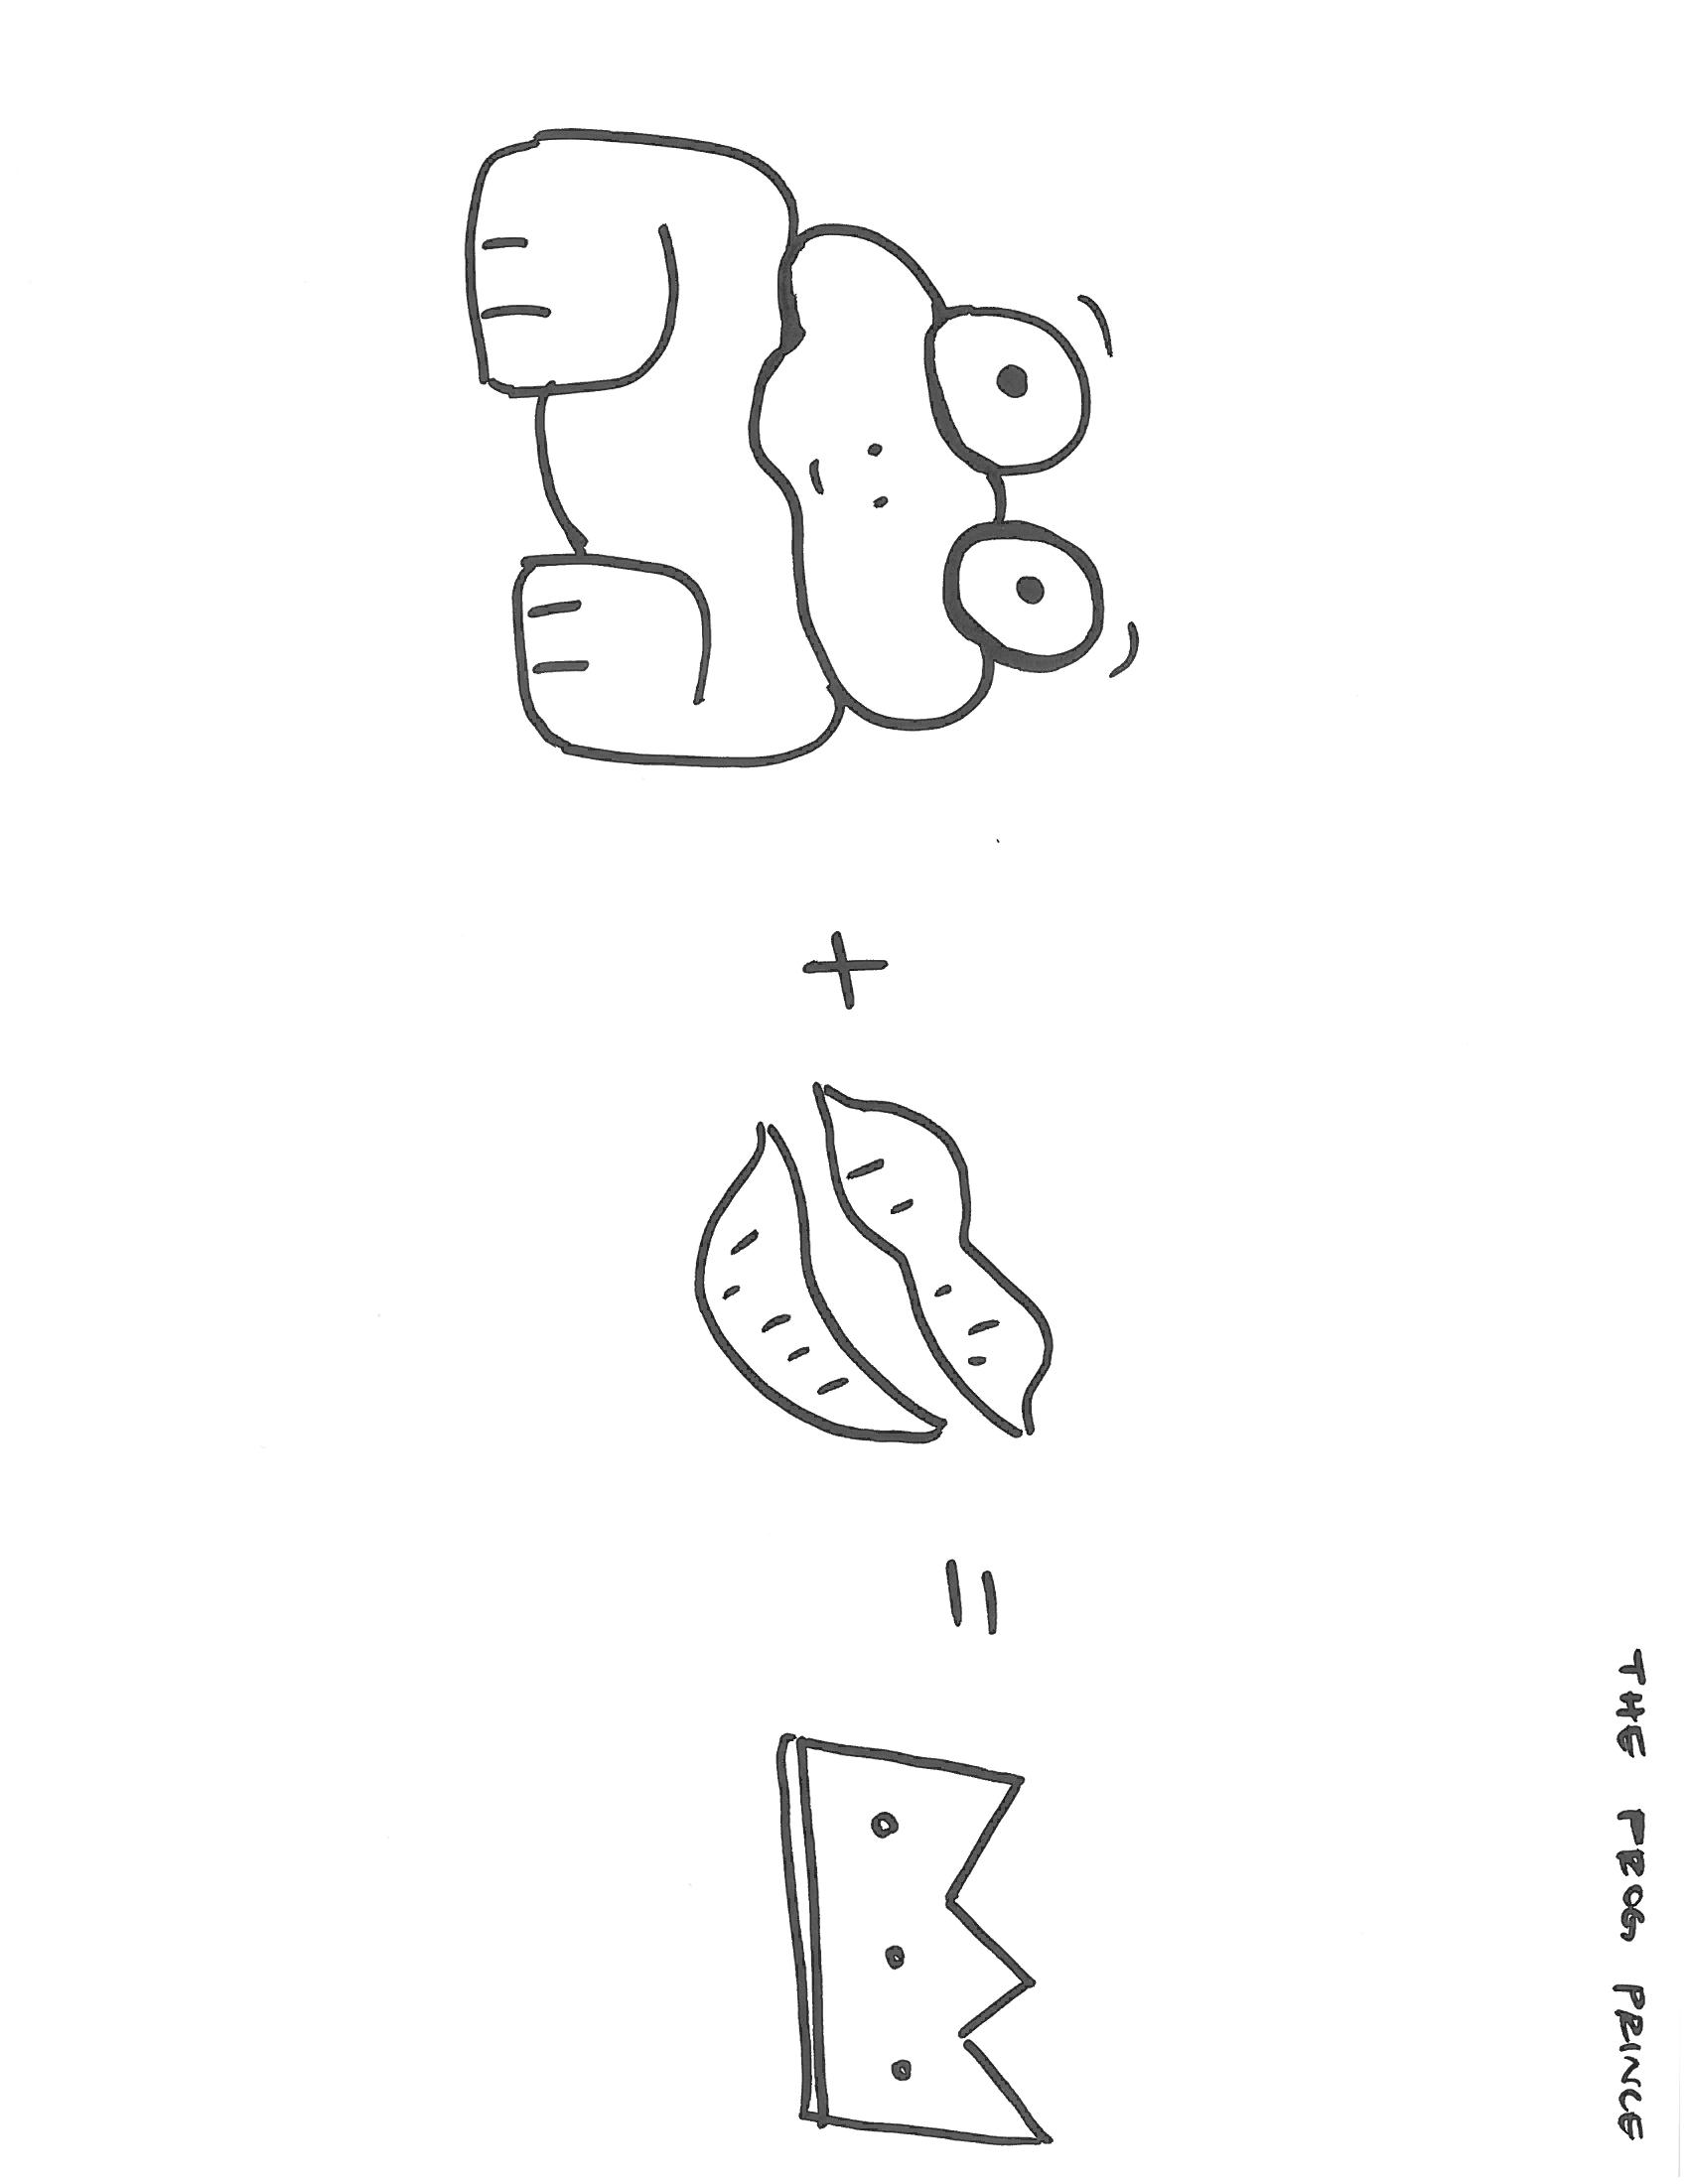 THE FROG PRINCE
+
=